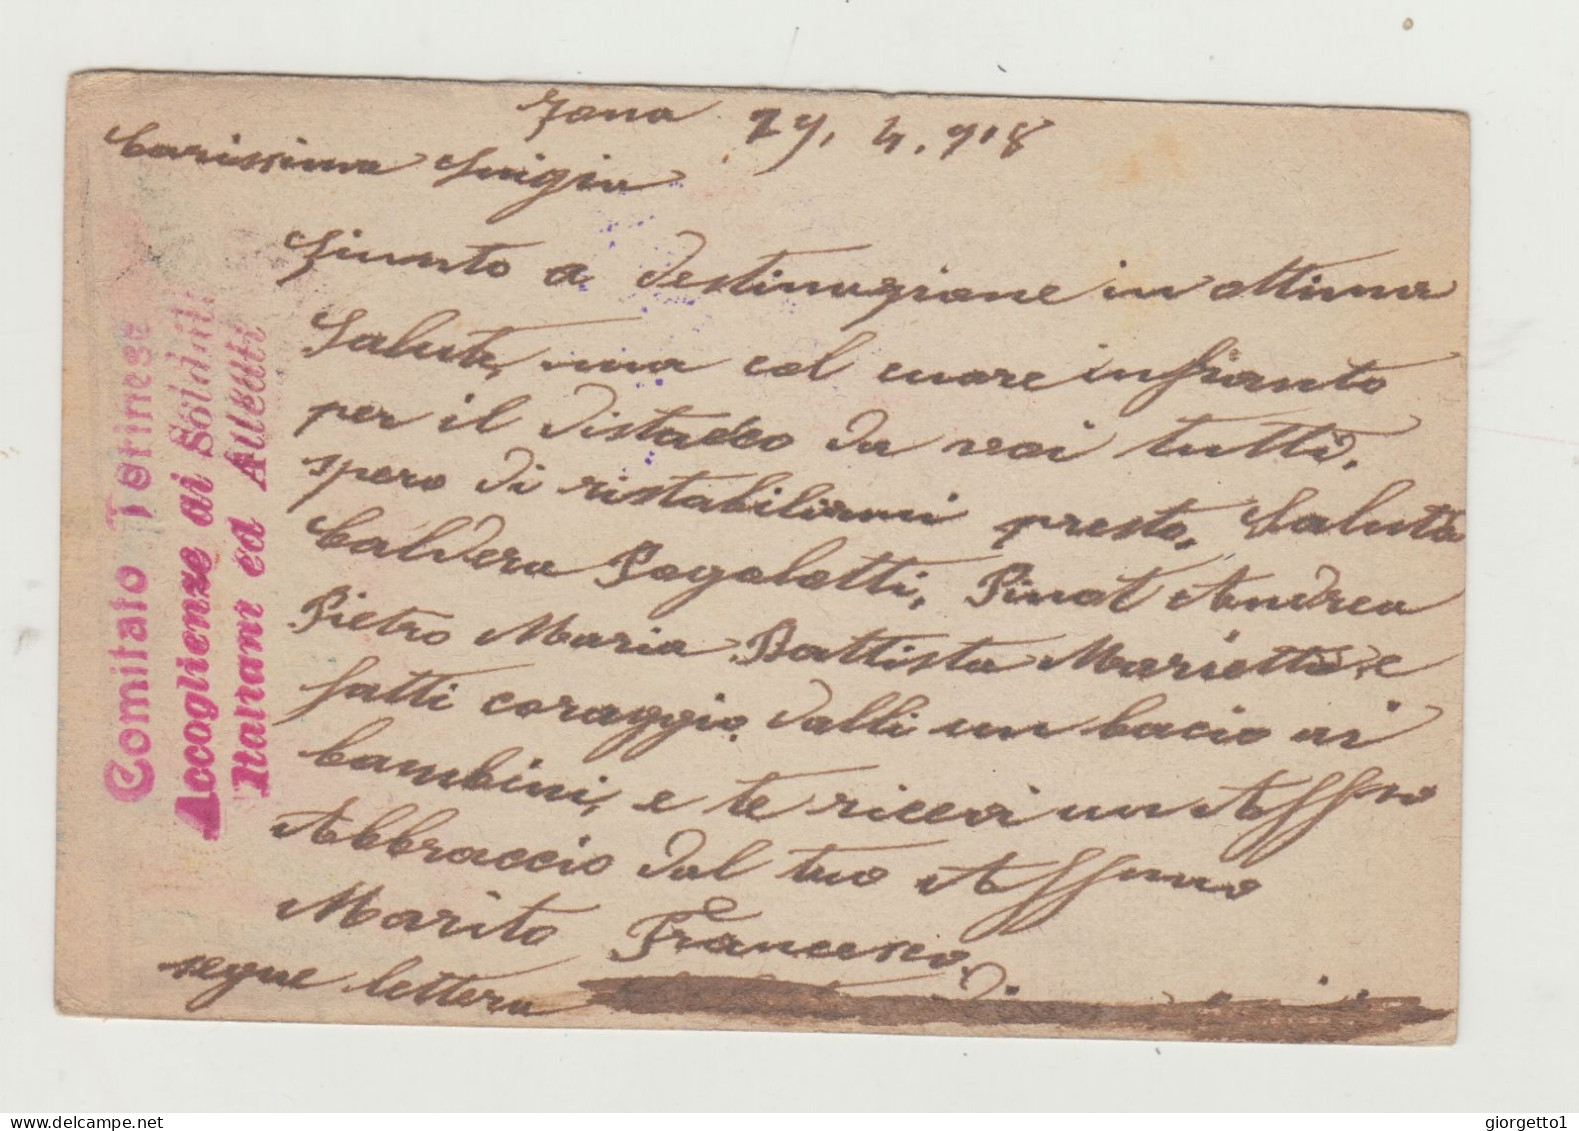 Zona 29. 4. 918
Carissima Luigia
Giunto a destinazione in ottima
Salute, ma col cuore infranto
per il distacco da voi tutti.
spero di ristabilirmi presto. Saluta
Caldera Pogolotti, Pinot Andrea
Pietro Maria Battista Marietta e
fatti coraggio dalli un bacio ai
bambini, e te ricevi un Affmo
Abbraccio dal tuo Affmo
Marito Francesco.
segue lettera
Comitato Torinese
Accoglienze ai Soldati
Italiani ed Alleati
giorgetto1